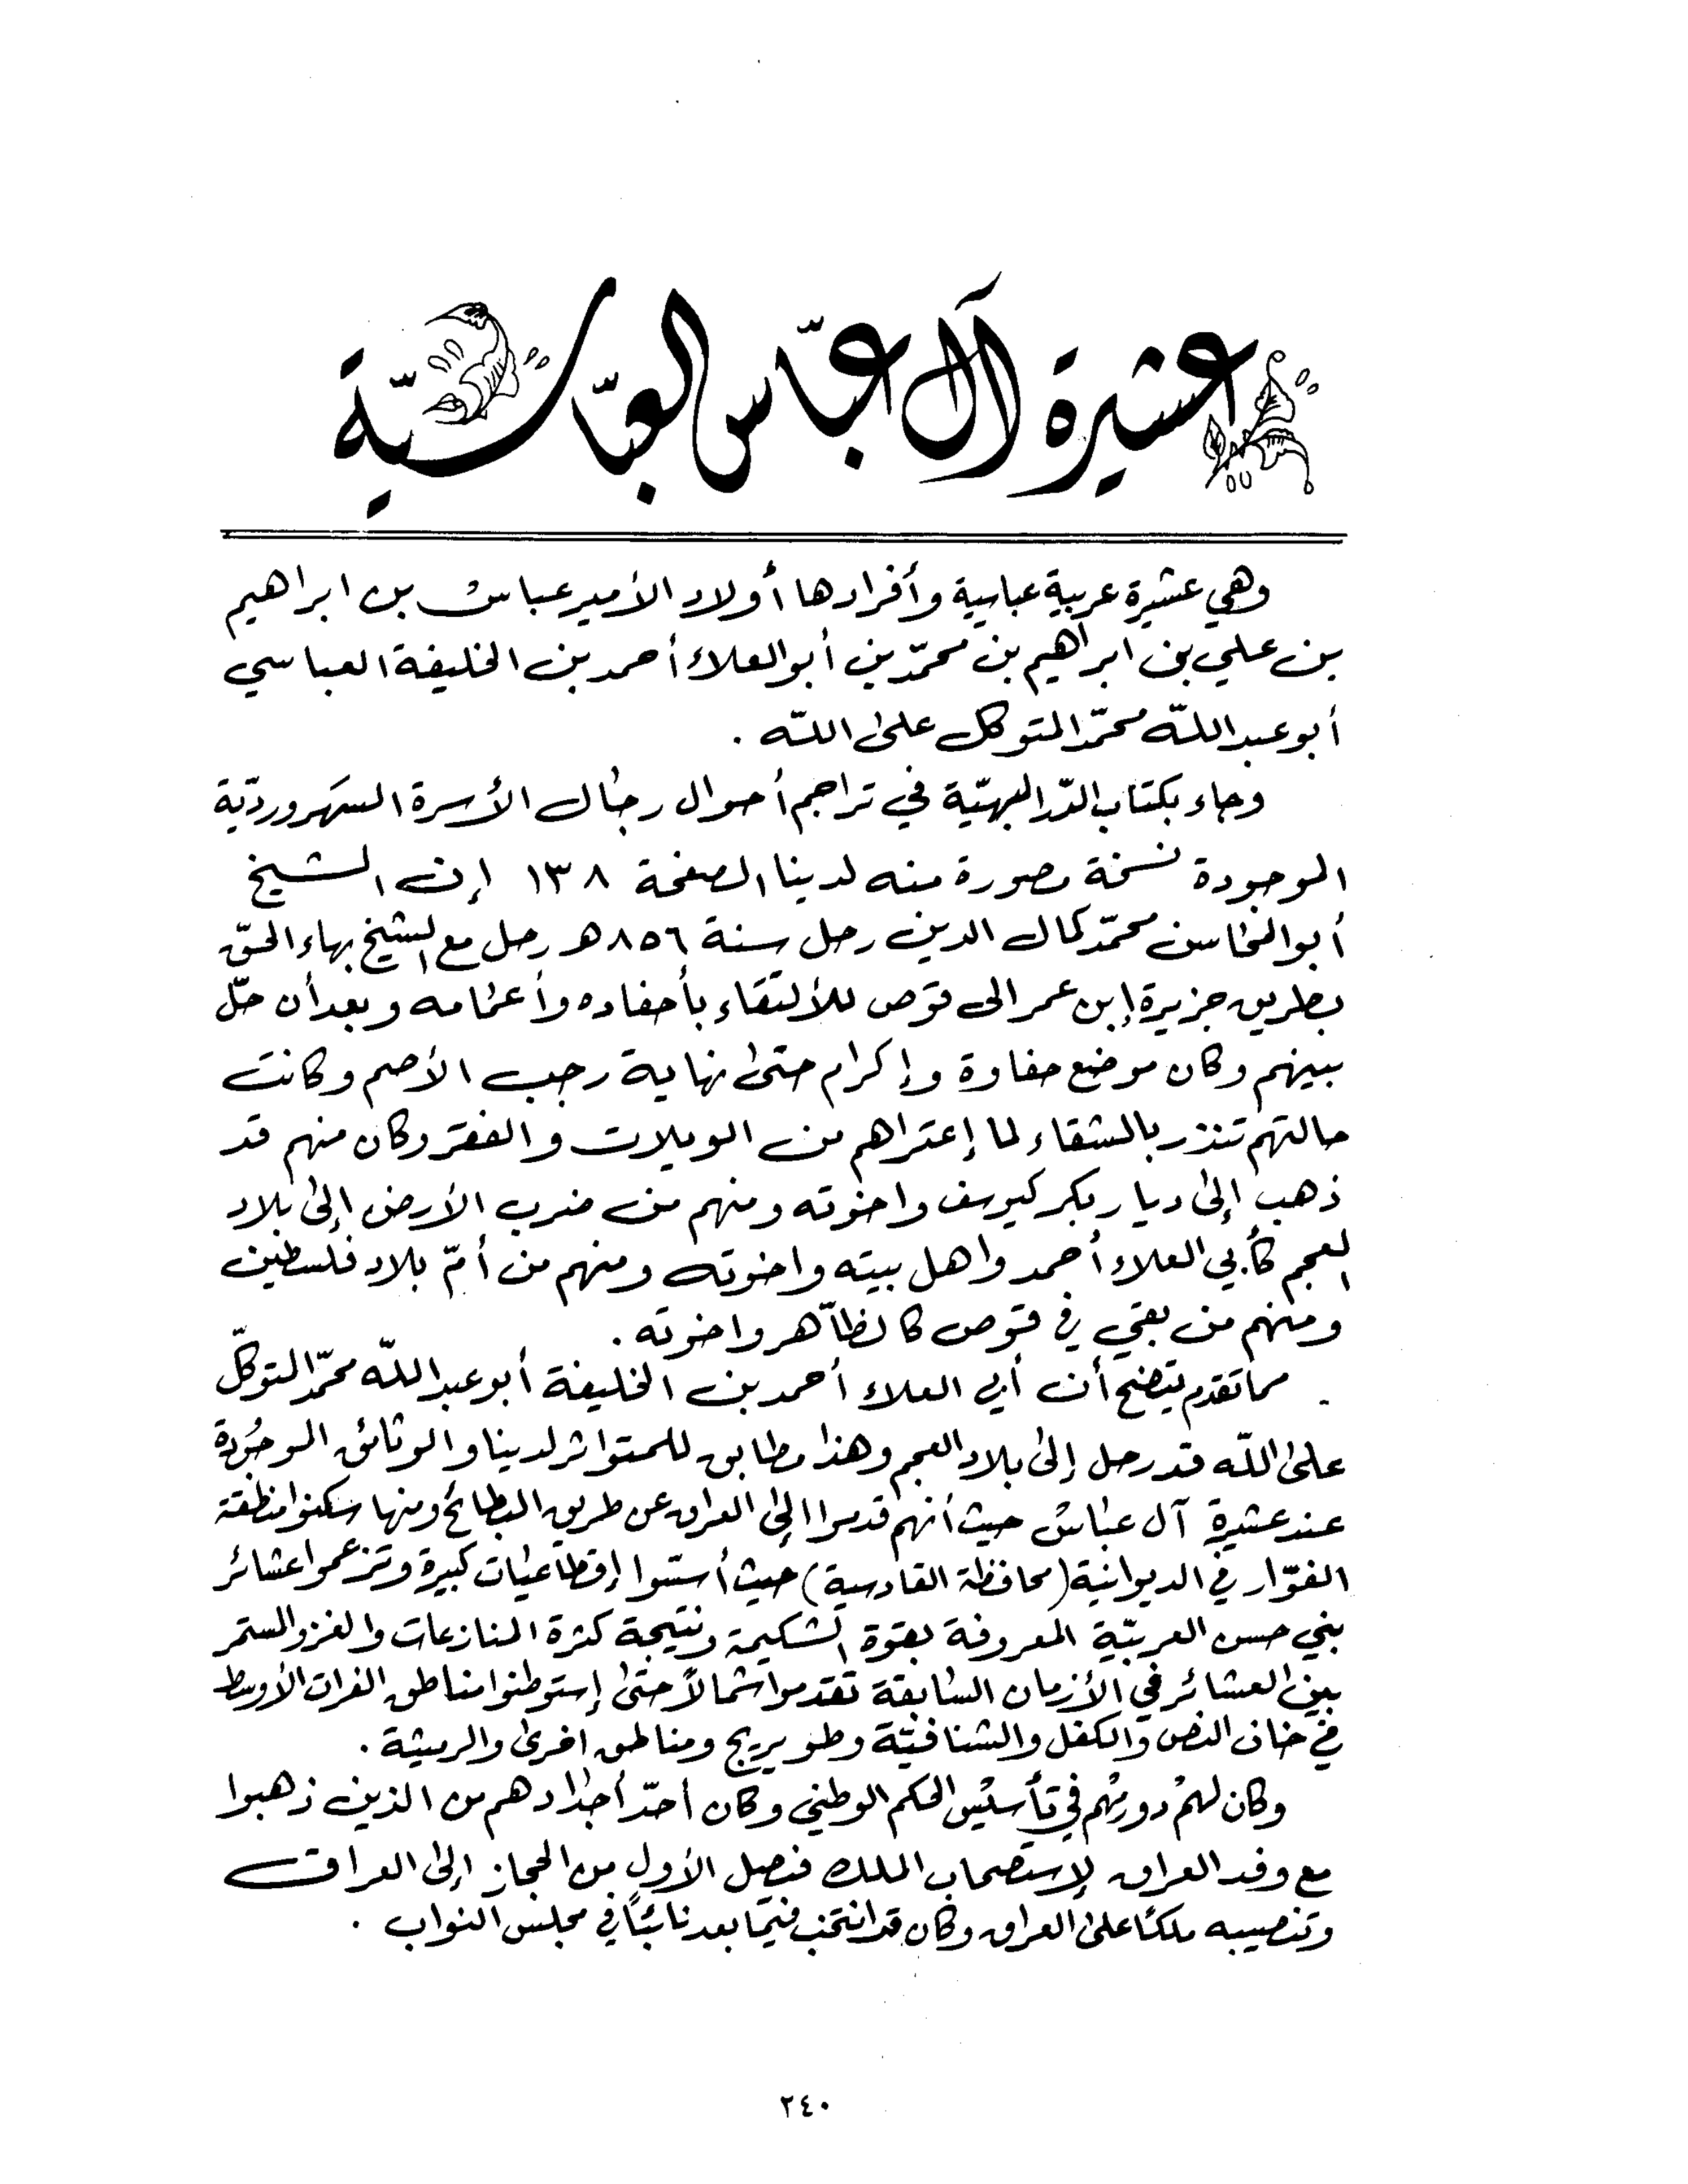 عشيرة آل عبّاس العبّاسيّة
وهي عشيرة عربية عباسية وأفرادها أولاد الأمير عباس بن ابراهيم
بن علي بن ابراهيم بن محمّد بن أبو العلاء أحمد بن الخليفة العباسي
أبو عبد اللّه محمّد المتوكل على اللّه .
وجاء بكتاب الدّر البهيّة في تراجم أحوال رجال الأسرة السهرورديّة
الموجودة نسخة مصورة منه لدينا الصفحة ١٣٨ إن الشيخ
أبو المحاسن محمّد كمال الدين رحل سنة ٨٥٦ هـ رحل مع الشيخ بهاء الحقّ
بطريق جزيرة إبن عمر الى قوص للألتقاء بأحفاده وأعمامه وبعد أن حلّ
بينهم وكان موضع حفاوة وإكرام حتى نهاية رجب الأصم وكانت
حالتهم تنذر بالشقاء لما إعتراهم من الويلات والفقر وكان منهم قد
ذهب إلى ديار بكر كيوسف واخوته ومنهم من ضرب الأرض إلى بلاد
العجم كأبي العلاء أحمد واهل بيته واخوته ومنهم من أمّ بلاد فلسطين
ومنهم من بقي في قوص كالظاهر واخوته .
مما تقدم يتضح أن أبي العلاء أحمد بن الخليفة أبو عبد اللّه محمّد المتوكّل
على اللّه قد رحل إلى بلاد العجم وهذا مطابق للمتواتر لدينا والوثائق الموجودة
عند عشيرة آل عباس حيث أنهم قدموا إلى العراق عن طريق البطائح ومنها سكنوا منطقة
الفوّار في الديوانية (محافظة القادسية) حيث أسسّوا إقطاعيات كبيرة وتزعموا عشائر
بني حسن العربيّة المعروفة بقوة الشكيمة ونتيجة كثرة المنازعات والغزو المستمر
بين العشائر في الأزمان السابقة تقدموا شمالاً حتى إستوطنوا مناطق الفرات الأوسط
في خان النص والكفل والشنافيّة وطويريج ومناطق اخرى والرميثة .
وكان لهم دورهم في تأسيس الحكم الوطني وكان أحدّ أجدادهم من الذين ذهبوا
مع وفد العراق لإستصحاب الملك فيصل الأول من الحجاز إلى العراق
وتنصيبه ملكاً على العراق وكان قد انتخب فيما بعد نائباً في مجلس النواب .
٢٤٠